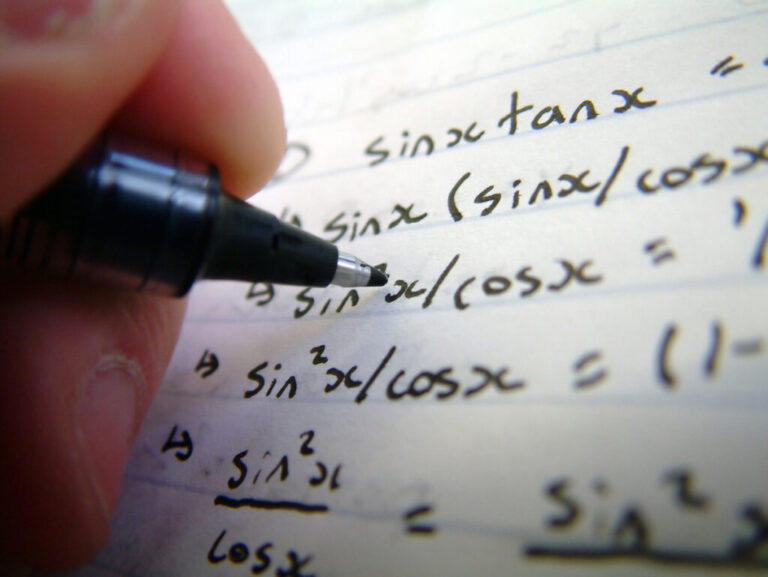 sinx tanx =
↳ sinx (sinx/cosx
↳ sin²x/cosx = 1/
↳ sin²x/cosx = (1-
↳ sin²x = sin²x
cosx